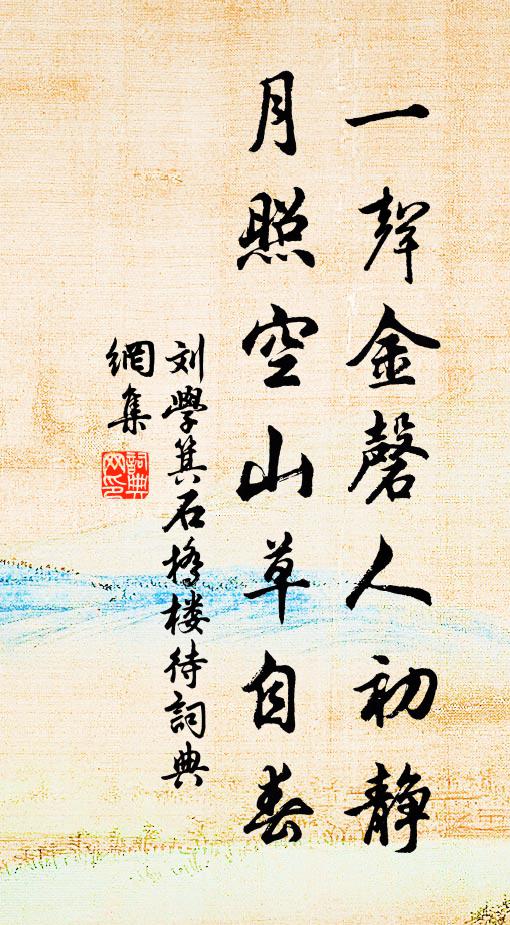 一聲金磬人初静
月照空山草自春
刘學箕石橋楼待詞典
網集
詞典
网印